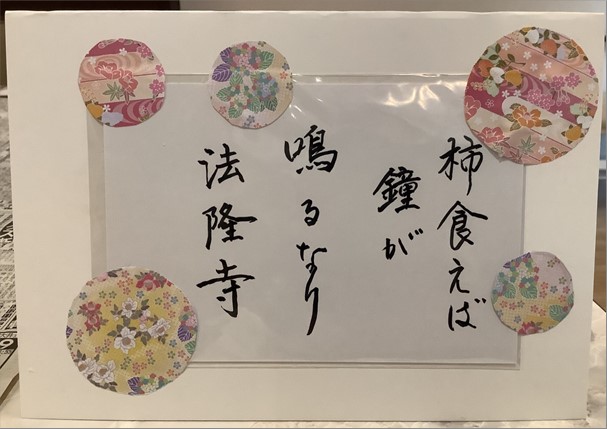 柿食えば
鐘が
鳴るなり
法隆寺